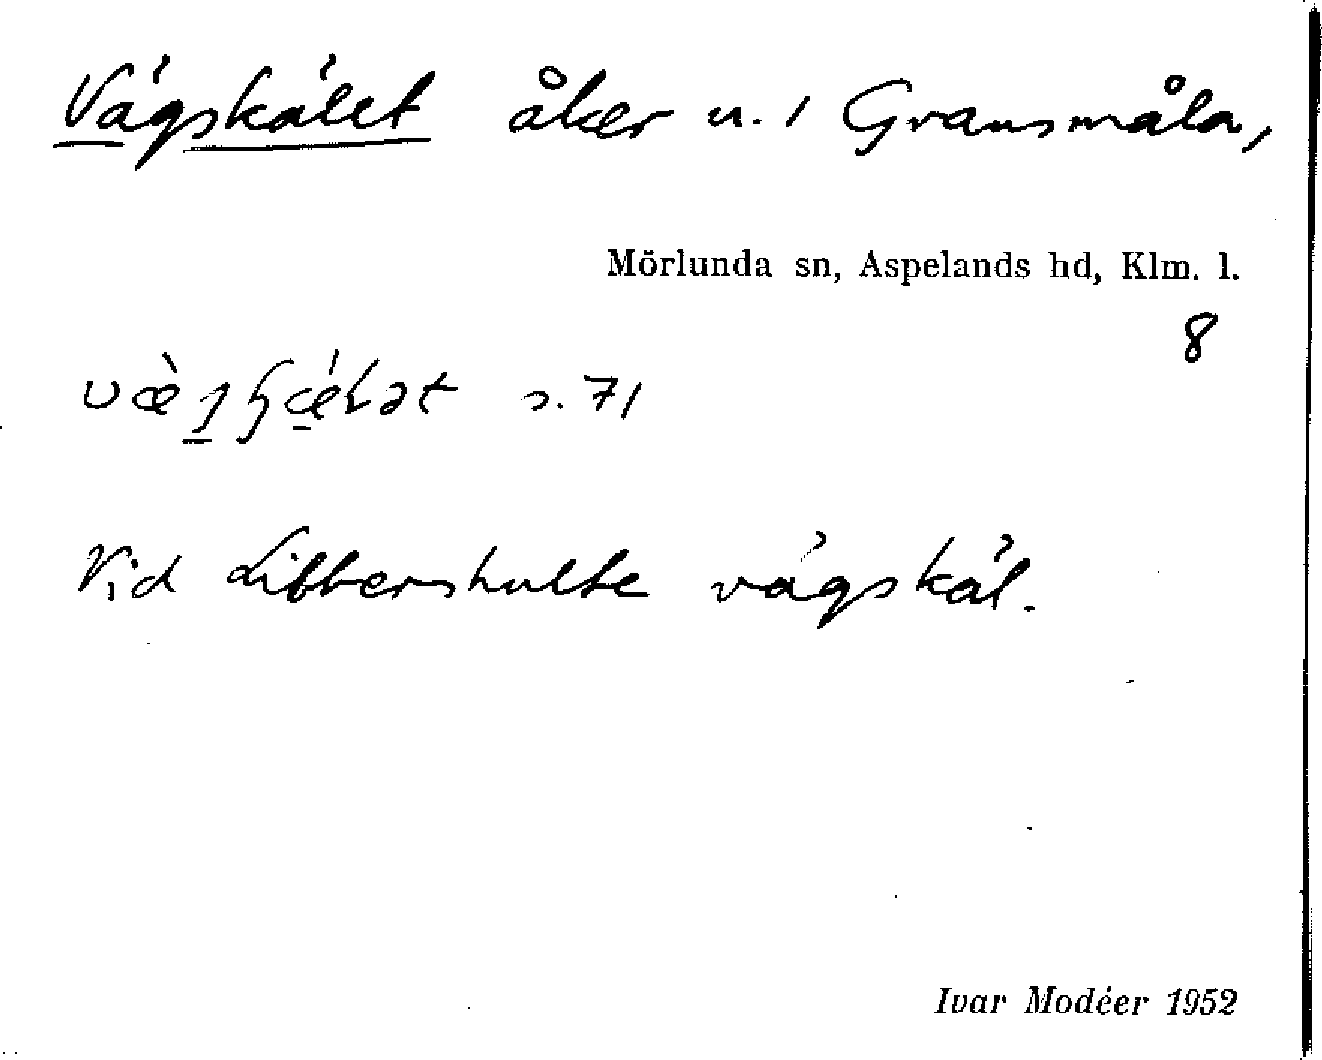 Vägskälet åker u. 1 Gransmåla,
Mörlunda sn, Aspelands hd, Klm. l.
8
s. 71
Vid Libbershults vägskäl.
Ivar Modéer 1952